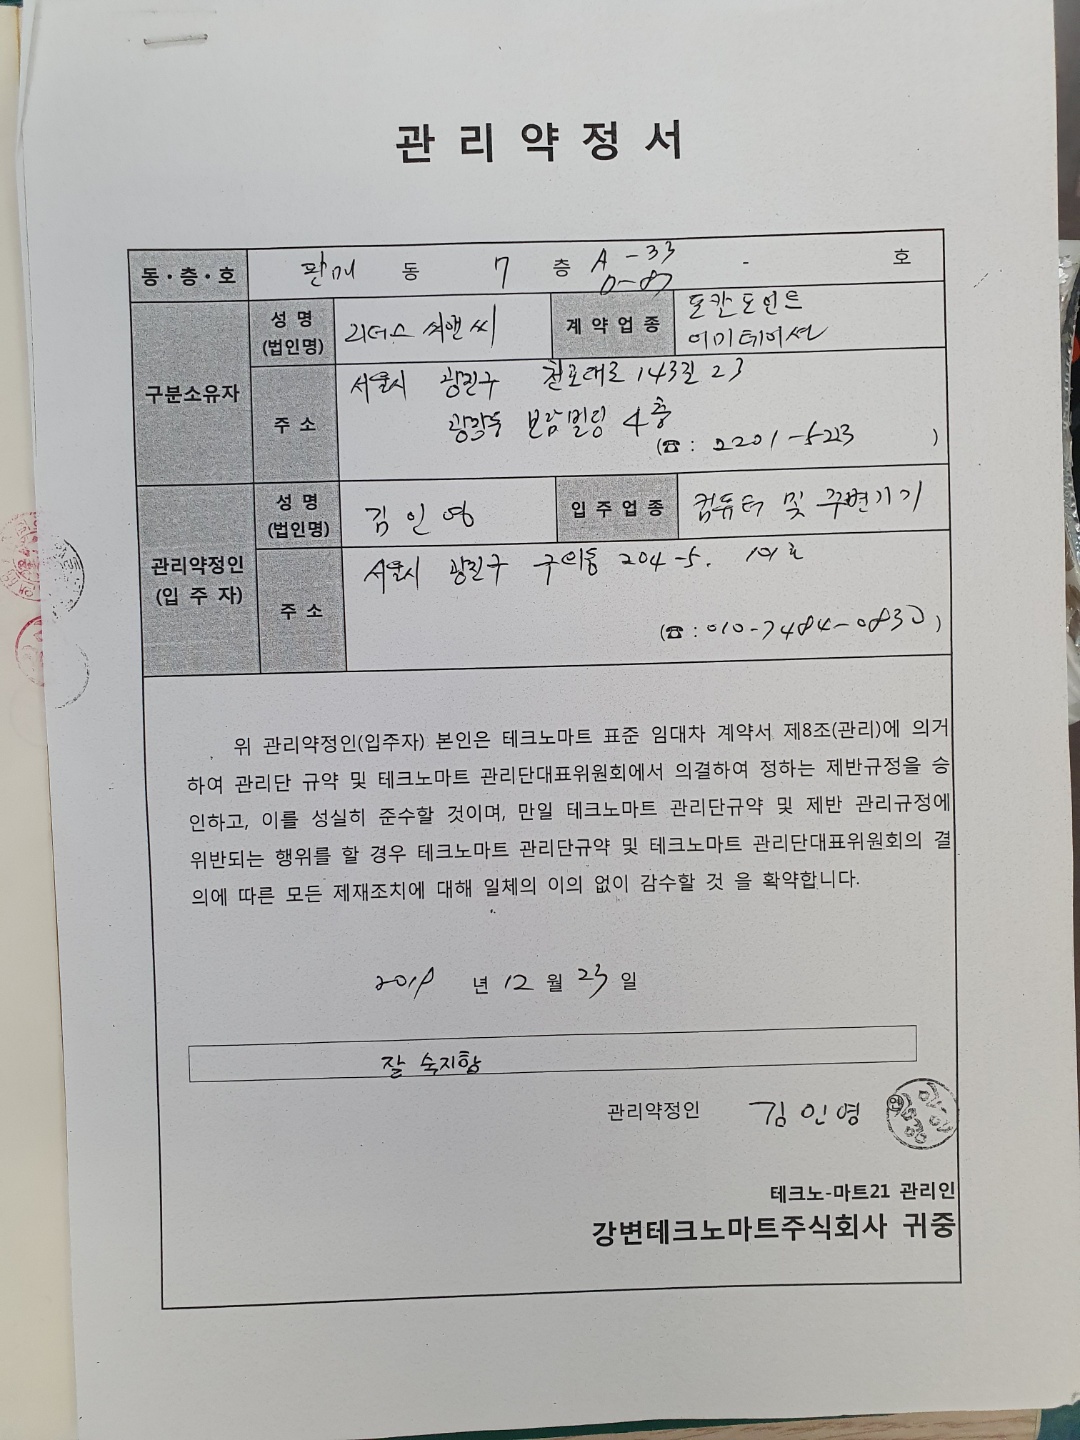 관 리 약 정 서
동·층·호 판매 동 7 층 A-33 - 호
D-87
구분소유자 성 명 (법인명) 리더스 씨앤씨 계 약 업 종 포칼포인트
이미테이션
주 소 서울시 광진구 천호대로 143길 23
광장동 보람빌딩 4층
(☎: 2201-5223 )
관리약정인 (입 주 자) 성 명 (법인명) 김 인 영 입 주 업 종 컴퓨터 및 주변기기
주 소 서울시 광진구 구의동 204-5. 101호
(☎: 010-7484-0830 )
위 관리약정인(입주자) 본인은 테크노마트 표준 임대차 계약서 제8조(관리)에 의거
하여 관리단 규약 및 테크노마트 관리단대표위원회에서 의결하여 정하는 제반규정을 승
인하고, 이를 성실히 준수할 것이며, 만일 테크노마트 관리단규약 및 제반 관리규정에
위반되는 행위를 할 경우 테크노마트 관리단규약 및 테크노마트 관리단대표위원회의 결
의에 따른 모든 제재조치에 대해 일체의 이의 없이 감수할 것 을 확약합니다.
2019 년 12 월 23 일
잘 숙지함
관리약정인 김 인 영
테크노-마트21 관리인
강변테크노마트주식회사 귀중